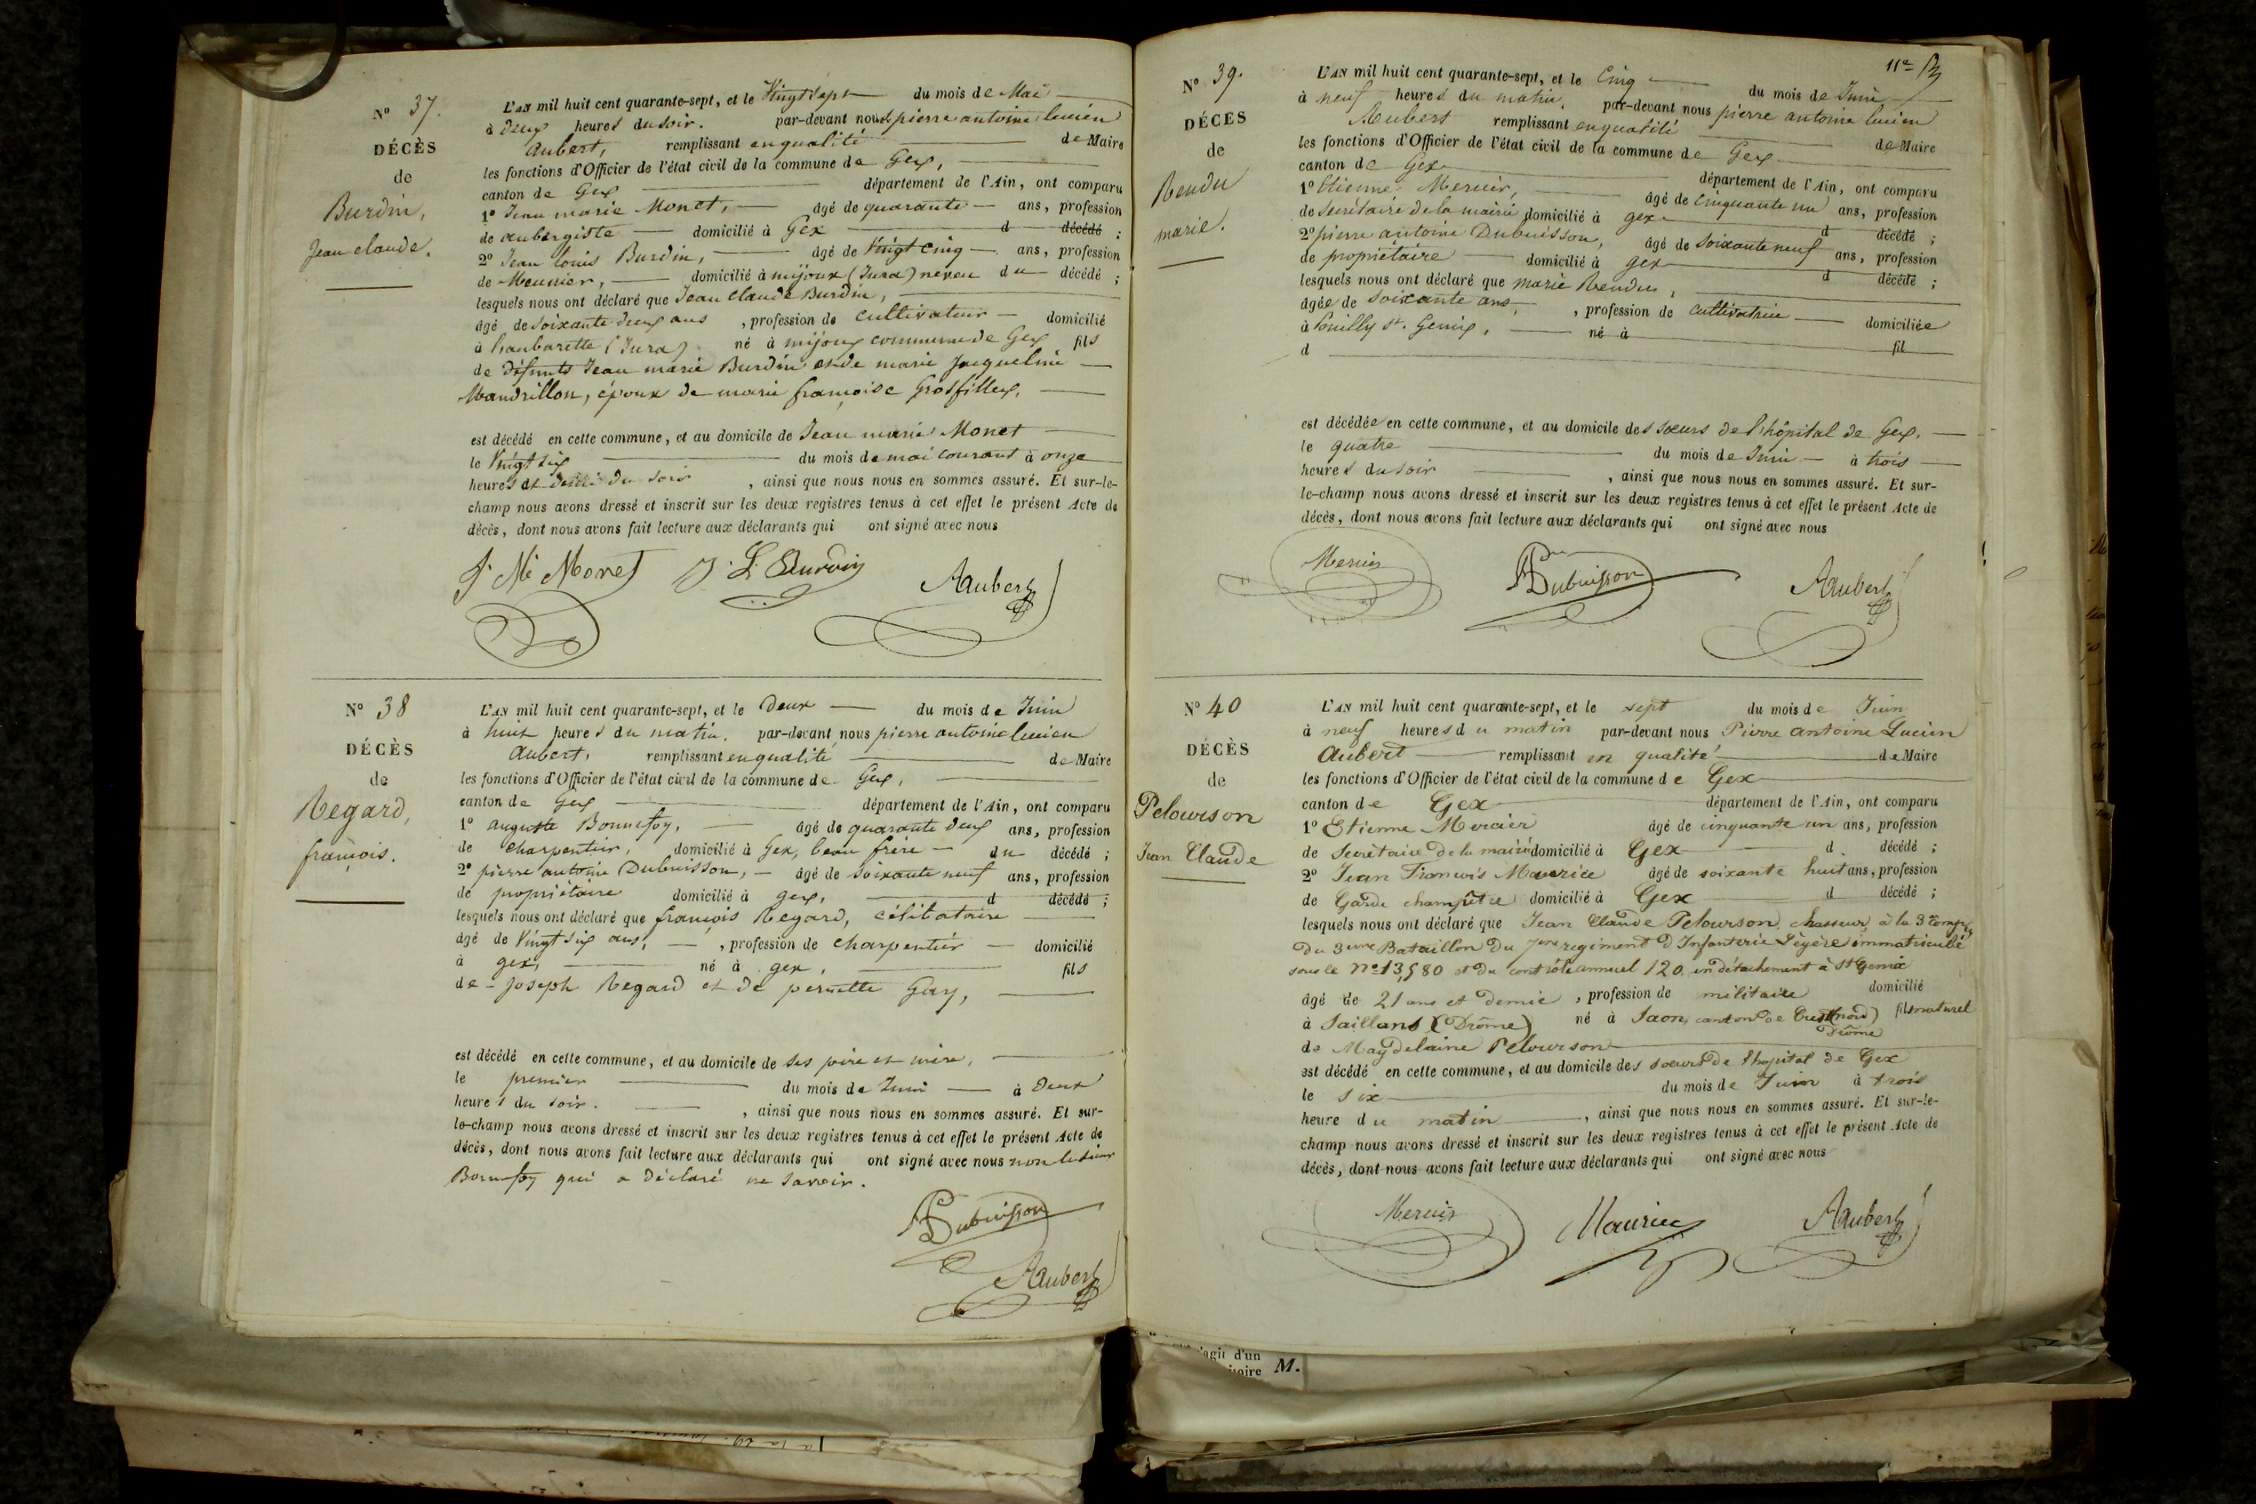 N° 37.
DÉCÈS
de
Burdin,
Jean claude.
L'AN mil huit cent quarante-sept, et le Vingt sept du mois de Mai
à deux heures du soir. par-devant nous pierre antoine lucien
aubert, remplissant en qualité de Maire
les fonctions d'Officier de l'état civil de la commune de Gex,
canton de Gex département de l'Ain, ont comparu
1° Jean marie Monet, âgé de quarante ans, profession
de aubergiste domicilié à Gex d décédé ;
2° Jean louis Burdin, âgé de Vingt cinq ans, profession
de Meunier, domicilié à mijoux (Jura) neveu du décédé ;
lesquels nous ont déclaré que Jean Claude Burdin,
âgé de soixante deux ans , profession de cultivateur domicilié
à (Jura) né à mijoux commune de Gex fils
de défunts Jean marie Burdin et de marie Jacqueline
Mandrillon, époux de marie françoise Grosfillex,
est décédé en cette commune, et au domicile de Jean marie Monet
le Vingt six du mois de mai courant à onze
heures et demie du soir , ainsi que nous nous en sommes assuré. Et sur-le-
champ nous avons dressé et inscrit sur les deux registres tenus à cet effet le présent Acte de
décès, dont nous avons fait lecture aux déclarants qui ont signé avec nous
J. Mi Monet J. L. Burdin AAubert
N° 38
DÉCÈS
de
Regard,
françois.
L'AN mil huit cent quarante-sept, et le deux du mois de Juin
à huit heures du matin. par-devant nous pierre antoine lucien
aubert, remplissant en qualité de Maire
les fonctions d'Officier de l'état civil de la commune de Gex,
canton de Gex département de l'Ain, ont comparu
1° auguste Bonnefoy, âgé de quarante deux ans, profession
de charpentier, domicilié à Gex, beau frère du décédé ;
2° pierre antoine Dubuisson, âgé de soixante neuf ans, profession
de propriétaire domicilié à gex, d décédé ;
lesquels nous ont déclaré que françois Regard, célibataire
âgé de Vingt six ans, , profession de charpentier domicilié
à gex, né à gex, fils
de Joseph Regard et de pernette Gay,
est décédé en cette commune, et au domicile de ses père et mère,
le premier du mois de Juin à Deux
heures du soir. , ainsi que nous nous en sommes assuré. Et sur-
le-champ nous avons dressé et inscrit sur les deux registres tenus à cet effet le présent Acte de
décès, dont nous avons fait lecture aux déclarants qui ont signé avec nous non le sieur
Bonnefoy qui a déclaré ne savoir.
Dubuisson
AAubert
11e
N° 39.
DÉCÈS
de
Rendu
marie.
L'AN mil huit cent quarante-sept, et le Cinq du mois de Juin
à neuf heures du matin. par-devant nous pierre antoine lucien
Aubert remplissant en qualité de Maire
les fonctions d'Officier de l'état civil de la commune de Gex
canton de Gex département de l'Ain, ont comparu
1° Etienne Mercier, âgé de cinquante un ans, profession
de secrétaire de la mairie domicilié à gex d décédé ;
2° pierre antoine Dubuisson, âgé de soixante neuf ans, profession
de propriétaire domicilié à gex d décédé ;
lesquels nous ont déclaré que marie Rendu,
âgée de soixante ans, , profession de cultivatrice domiciliée
à Pouilly St. Genix, né à fil
d
est décédée en cette commune, et au domicile des sœurs de l'hôpital de Gex.
le quatre du mois de Juin à trois
heures du soir , ainsi que nous nous en sommes assuré. Et sur-
le-champ nous avons dressé et inscrit sur les deux registres tenus à cet effet le présent Acte de
décès, dont nous avons fait lecture aux déclarants qui ont signé avec nous
Mercier Dubuisson AAubert
N° 40
DÉCÈS
de
Pelourson
Jean Claude
L'AN mil huit cent quarante-sept, et le sept du mois de Juin
à neuf heures du matin par-devant nous Pierre antoine Lucien
Aubert remplissant en qualité de Maire
les fonctions d'Officier de l'état civil de la commune de Gex
canton de Gex département de l'Ain, ont comparu
1° Etienne Mercier âgé de cinquante un ans, profession
de Secrétaire de la mairie domicilié à Gex d décédé ;
2° Jean François Maurice âgé de soixante huit ans, profession
de Garde champêtre domicilié à Gex d décédé ;
lesquels nous ont déclaré que Jean Claude Pelourson, chasseur à la 3me Compie
du 3eme Bataillon du 7eme regiment D'Infanterie Légère immatriculé
sous le N° 13,580 et du contrôle annuel 120 en détachement à St Genix
âgé de 21 ans et demie , profession de militaire domicilié
à Saillans (Drôme) né à Saon, canton de Crest (nord) fils naturel
Drôme
de Magdelaine Pelourson
est décédé en cette commune, et au domicile des sœurs de l'hopital de Gex
le six du mois de Juin à trois
heure du matin , ainsi que nous nous en sommes assuré. Et sur-le-
champ nous avons dressé et inscrit sur les deux registres tenus à cet effet le présent Acte de
décès, dont nous avons fait lecture aux déclarants qui ont signé avec nous
Mercier Maurice AAubert
agit d'un
oire M.